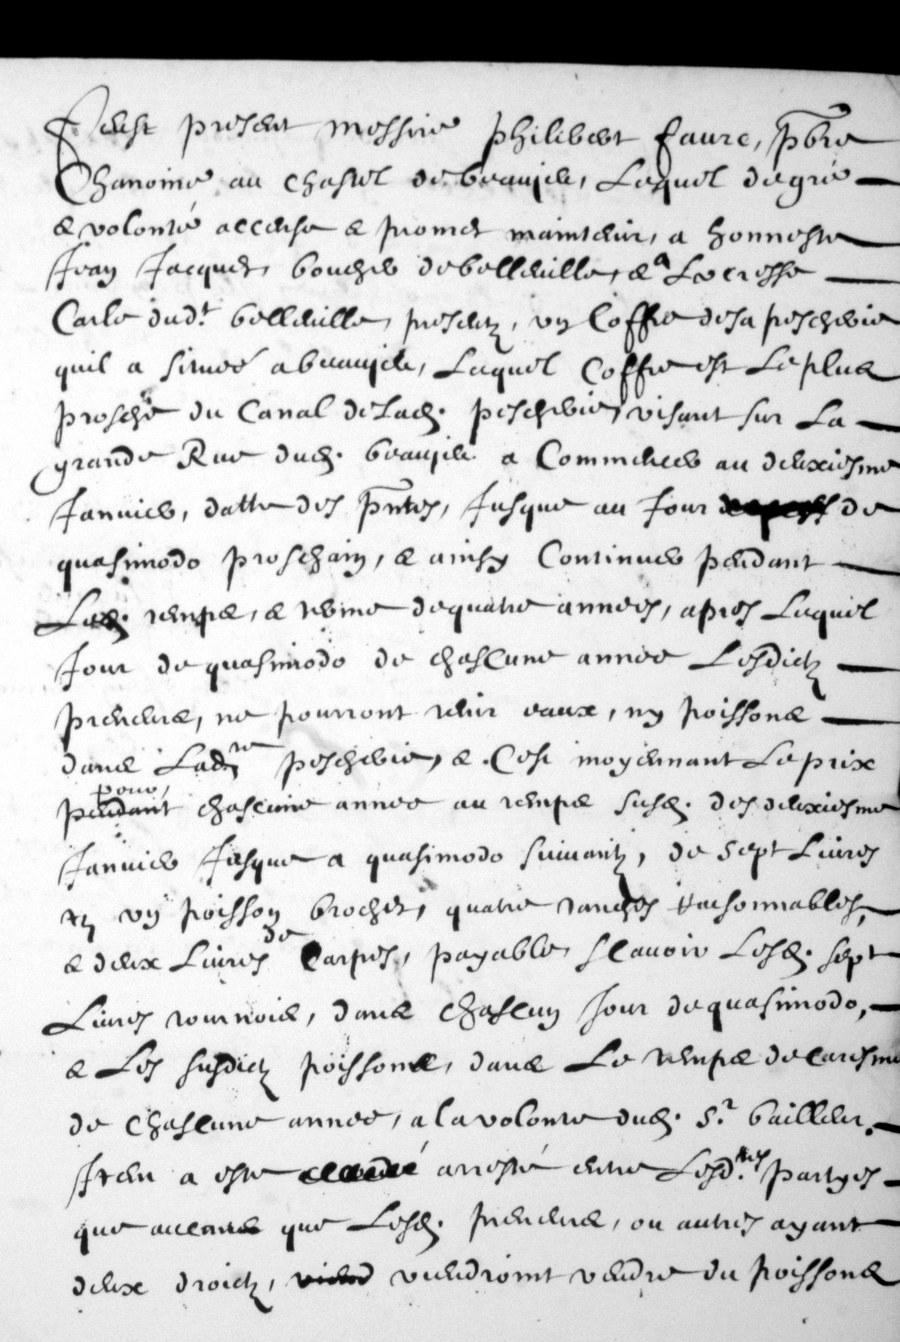 Feust present messire philibert faure, pbre
Chanoine au chastel de beaujeu, Lequel de gre
& volonté accense & promet maintenir, a honneste
Jean Jacquet, boucher de belleville, & a Lucresse
Carle dud.t belleville, presentz, un Coffre de sa pescherie
quil a située a beaujeu, Lequel Coffre est Le plus
prosche du Canal de Lad. pescherie, visant sur La
grande Rue dud. beaujeu a Commencer au deuxiesme
Janvier, datte des pntes, Jusque au Jour de
quasimodo proschain, & ainsy Continuer pendant
Led. temps, & terme de quatre années, apres Lequel
Jour de quasimodo de chascune année Lesdictz
preneurs, ne pourront tenir eaux, ny poissons
dans Ladte pescherie, & Cest moyennant Le prix
pour chascune année au temps susd. des deuxiesme
Janvier Jusque a quasimodo suivantz, de sept Livres
tz un poisson brochet, quatre tanches Raisonnables,
& deux Livres de Carpes, payable, scavoir Lesd. sept
Livres tournois, dans chascun Jour de quasimodo,
& Les susdictz poissons, dans Le temps de Caresme
de chascune année, a la volonte dud. Sr. bailleur.
Item a este arresté entre Lesd.tes partyes
que que Lesd. preneurs, ou autres ayant
deux droictz, viendroint vendre du poissons